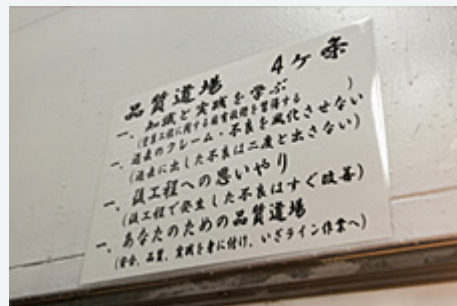 品質道場　4ケ条
一、知識と実践を学ぶ
一、過去のクレーム・不良を風化させない
(過去に出した不良は二度と出さない)
一、後工程への思いやり
(後工程で発生した不良はすぐ改善)
一、あなたのための品質道場
(安全、品質、実践を身に付け、いざライン作業へ)